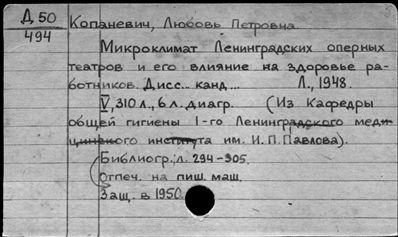 Д 50
494
Копаневич, Любовь Петровна.
Микроклимат Ленинградских оперных
театров и его влияние на здоровье ра-
ботников. Дисс... канд... Л., 1948.
V, 310 л., 6 л. диагр. (Из Кафедры
общей гигиены 1-го Ленинградского мед-
цинского института им. И.П. Павлова).
Библиогр: л. 294-305.
Отпеч. на пиш. маш.
Защ. в 1950.